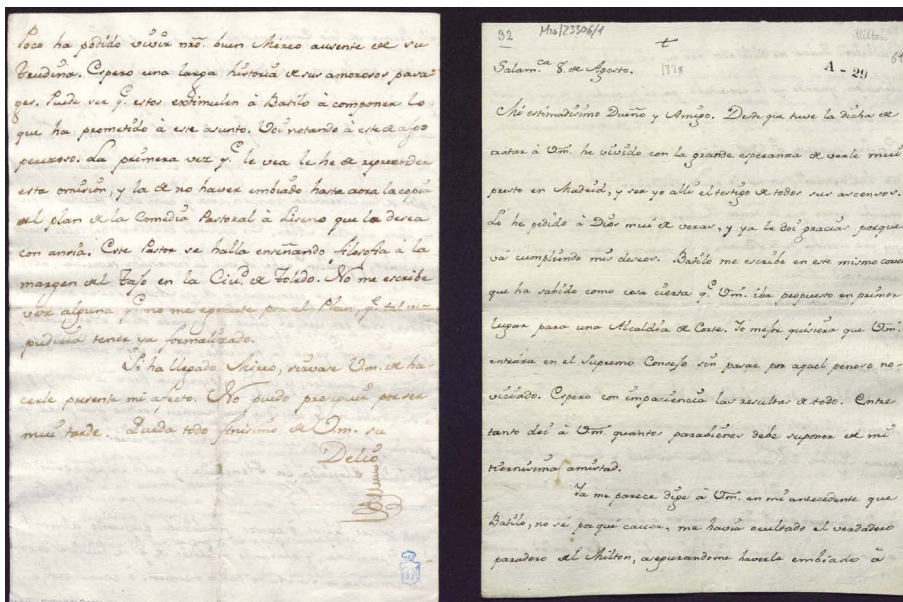 Poco ha podido vivir nrõ. buen Mireo ausente de su
Trudina. Espero una larga historia de sus amorosos pasa-
ges. Puede ser q.̃ estos extimulen à Batilo à componer lo
que ha prometido à este asunto. Voi notando à este de algo
perezoso. La primera vez q.̃ le vea le he de reprender
esta omisión, y la de no haver embiado hasta aora la copia
del plan de la Comedia Pastoral à Liseno que la desea
con ansia. Este Pastor se halla enseñando filosofia à la
margen del Tajo en la Ciu.d de Toledo. No me escribe
vez alguna q.̃ no me egecute por el Plan, q.̃ tal vez
pudiera tener ya formalizado.
Si ha llegado Mireo, sirvase Vm. de ha-
cerle presente mi afecto. No puedo proseguir por ser
mui tarde. Queda todo finisimo de Vm. su
Delio
32
Mss/23306/1
t
Milton
64
Salam.ca 8. de Agosto.
1778
A - 29
Mi estimadisimo Dueño y Amigo. Desde que tuve la dicha de
tratar à Vm. he vivido con la grande esperanza de verle mui
presto en Madrid, y ser yo allí el testigo de todos sus ascensos.
Lo he pedido à Dios mui de veras, y ya le doi gracias porque
va cumpliendo mis deseos. Batilo me escribe en este mismo correo
que ha sabido como cosa cierta q.̃ Vm. iba propuesto en primer
lugar para una Alcaldía de Corte. Io mejor quisiera que Vm.
entrára en el Supremo Consejo sin pasar por aquel penoso no-
viciado. Espero con impaciencia las resultas de todo. Entre
tanto doi à Vm. quantos parabienes debe suponer de mi
tiernisima amistad.
Ya me parece dige à Vm. en mi antecedente que
Batilo, no sé por qué causa, me havia ocultado el verdadero
paradero del Milton, asegurandome haverle embiado à